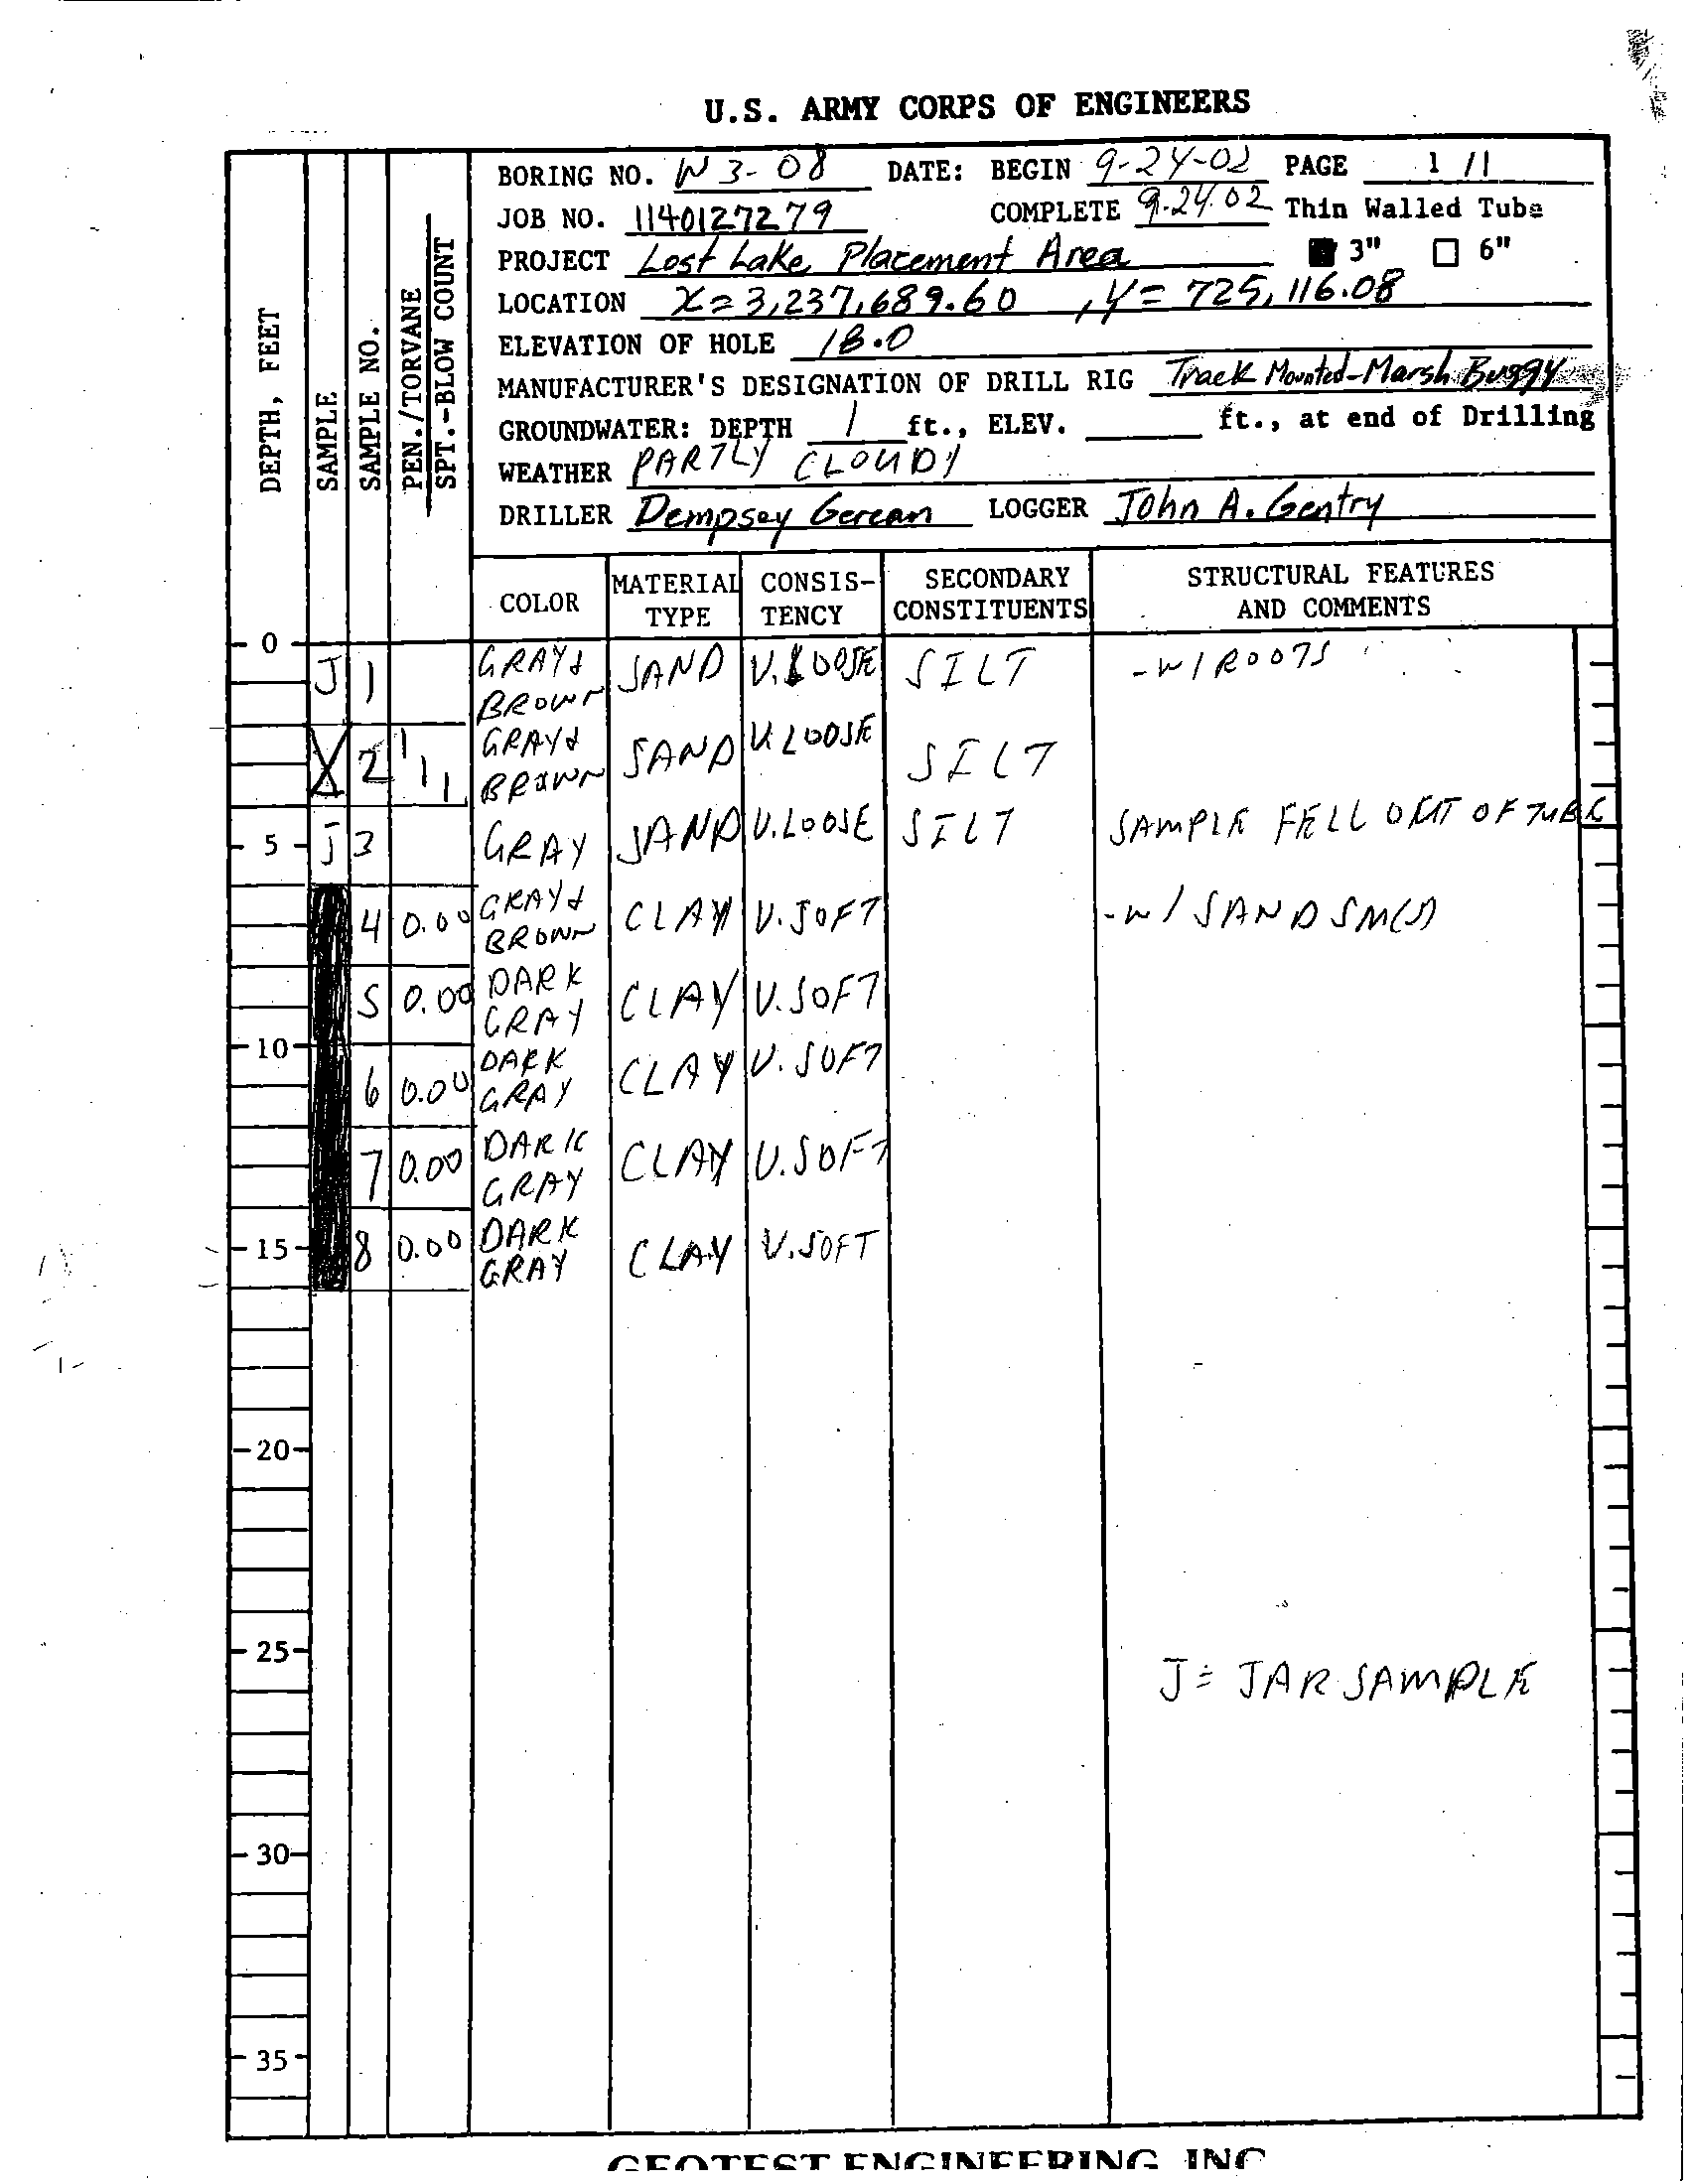 U.S. ARMY CORPS OF ENGINEERS
BORING NO. W 3-08 DATE: BEGIN 9-24-02 PAGE 1 / 1
JOB NO. 1140127279 COMPLETE 9-24-02 Thin Walled Tube
PROJECT Lost Lake Placement Area 3" 6"
LOCATION X=3,237,689.60 , Y= 725,116.08
ELEVATION OF HOLE 18.0
MANUFACTURER'S DESIGNATION OF DRILL RIG Track Mounted-Marsh Buggy
GROUNDWATER: DEPTH 1 ft., ELEV. ft., at end of Drilling
WEATHER PARTLY CLOUDY
DRILLER Dempsey LOGGER John A. Gentry
DEPTH, FEET
SAMPLE
SAMPLE NO.
PEN./TORVANE
SPT.-BLOW COUNT
COLOR MATERIAL TYPE CONSIS-TENCY SECONDARY CONSTITUENTS STRUCTURAL FEATURES AND COMMENTS
0
J 1 GRAY & BROWN SAND V. LOOSE SILT -W/ ROOTS
2 1 1 1 GRAY & BROWN SAND V. LOOSE SILT
5 J 3 GRAY SAND V. LOOSE SILT SAMPLE FELL OUT OF TUBE
4 0.00 GRAY & BROWN CLAY V. SOFT -W/ SAND SM(S)
5 0.00 DARK GRAY CLAY V. SOFT
10
6 0.00 DARK GRAY CLAY V. SOFT
7 0.00 DARK GRAY CLAY V. SOFT
15 8 0.00 DARK GRAY CLAY V. SOFT
20
25
J = JAR SAMPLE
30
35
GEOTEST ENGINEERING, INC